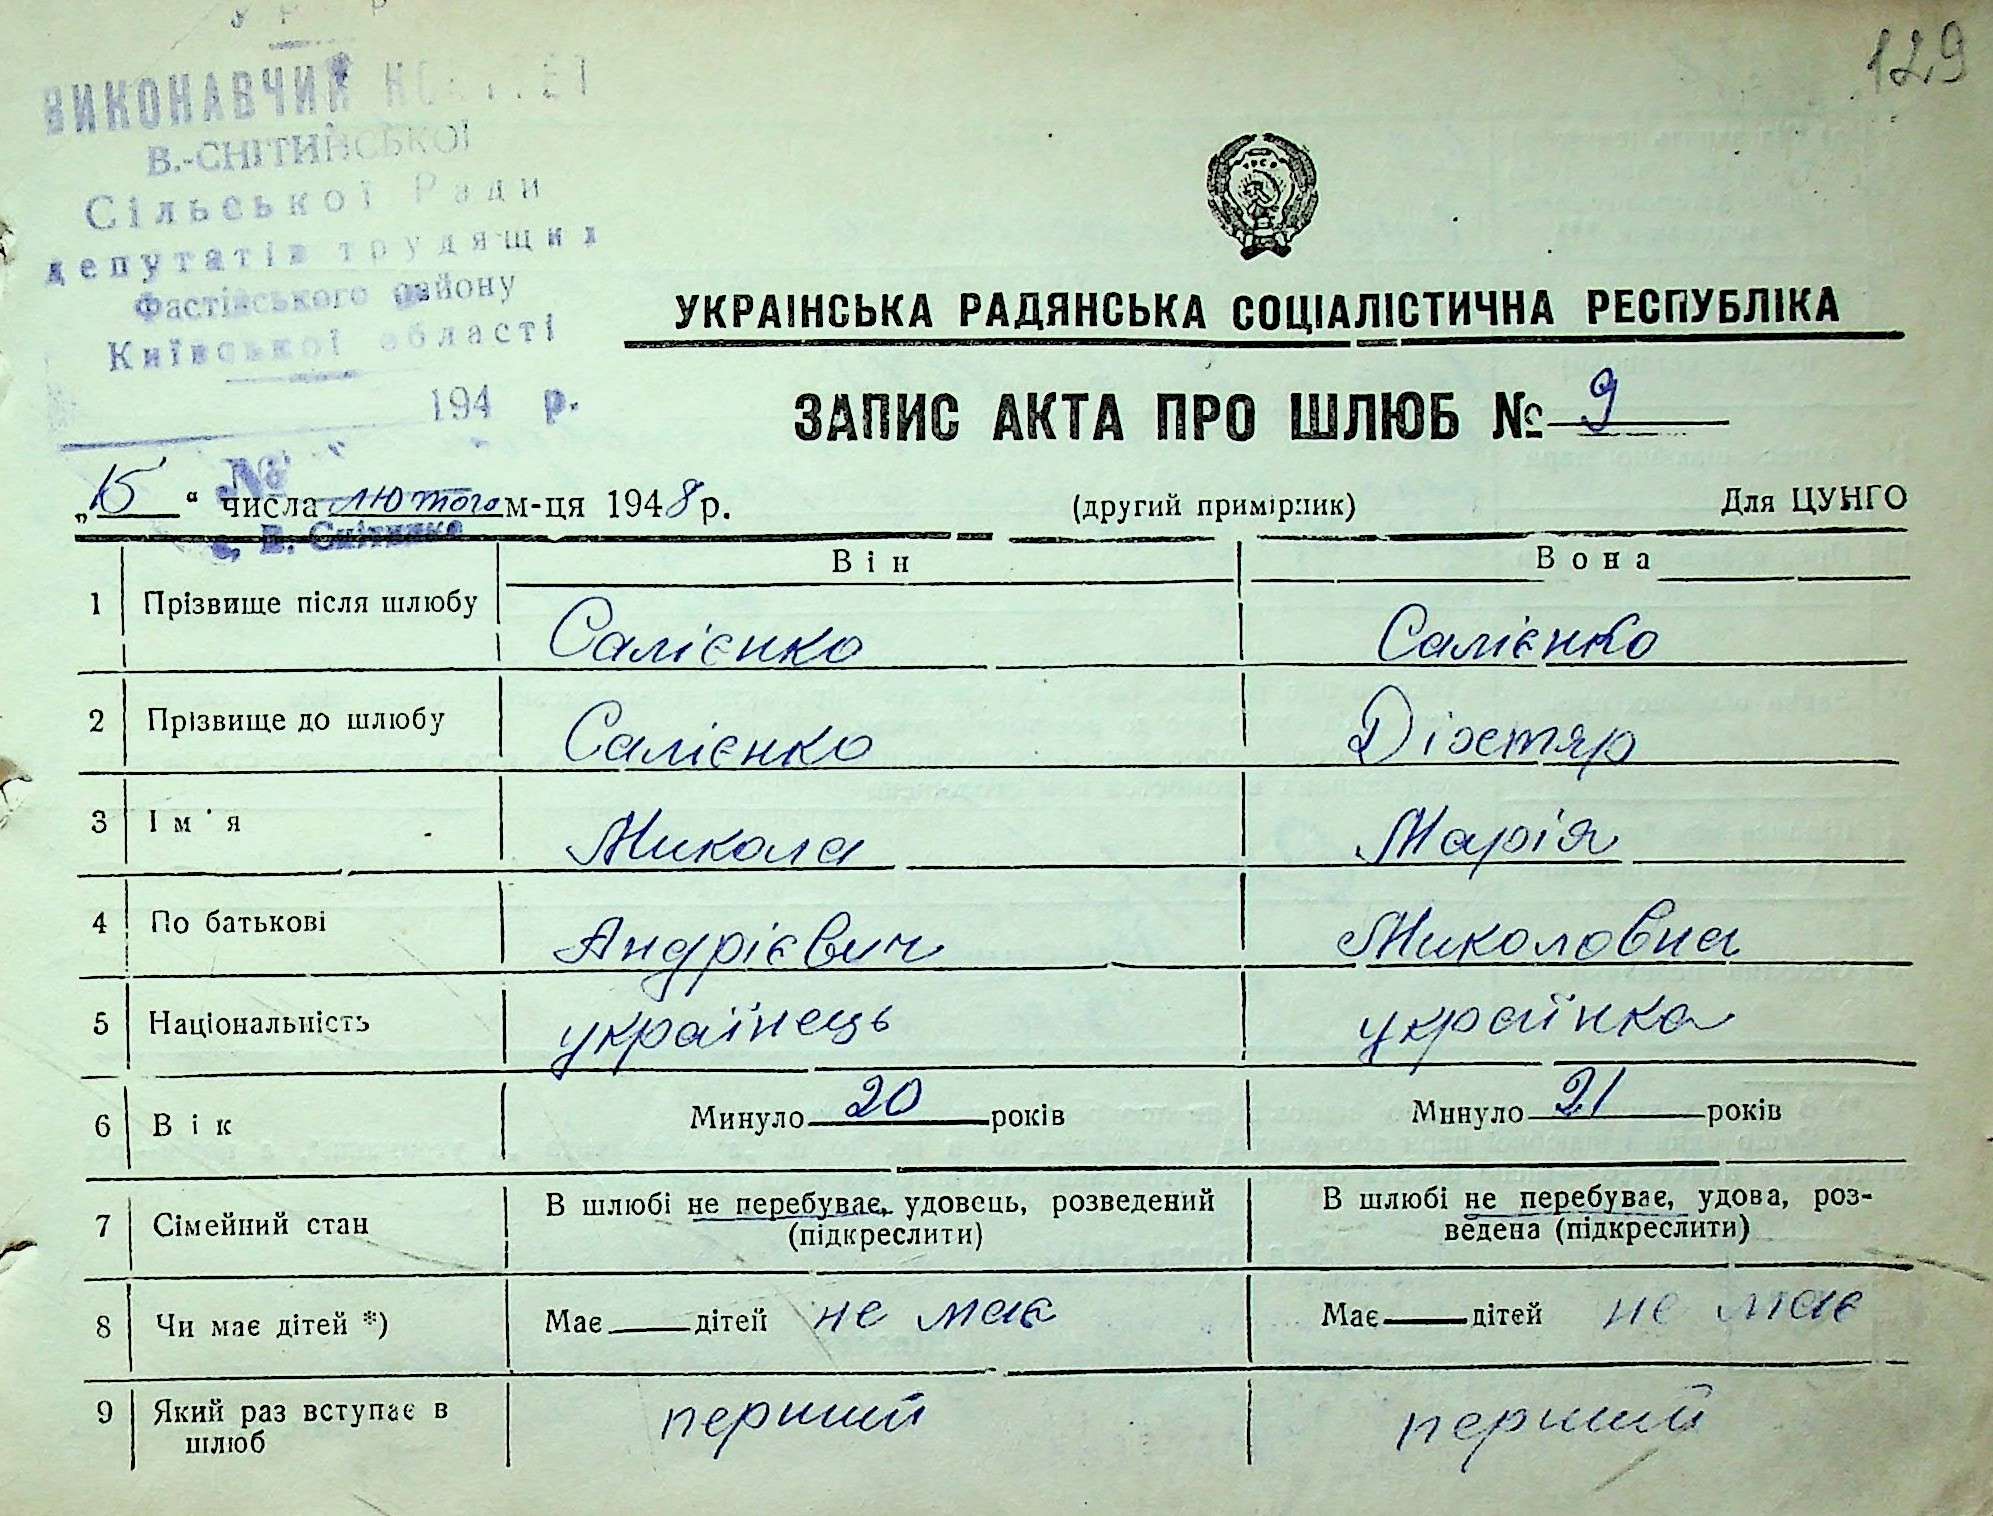 129
У Р Р
ВИКОНАВЧИЙ КОМІТЕТ
В.-СНІТИНСЬКОЇ
Сільської Ради
депутатів трудящих
Фастівського району
Київської області
194 р.
№
с. В. Снітинка
УКРАІНСЬКА РАДЯНСЬКА СОЦІАЛІСТИЧНА РЕСПУБЛІКА
ЗАПИС АКТА ПРО ШЛЮБ № 9
„15“ числа лютого м-ця 1948 р. (другий примірник) Для ЦУНГО
Він Вона
1 Прізвище після шлюбу Салієнко Салієнко
2 Прізвище до шлюбу Салієнко Діхтяр
3 Ім'я Микола Марія
4 По батькові Андрієвич Миколовна
5 Національність українець українка
6 Вік Минуло 20 років Минуло 21 років
7 Сімейний стан В шлюбі не перебуває, удовець, розведений (підкреслити) В шлюбі не перебуває, удова, роз-
ведена (підкреслити)
8 Чи має дітей *) Має дітей не має Має дітей не має
9 Який раз вступає в шлюб перший перший